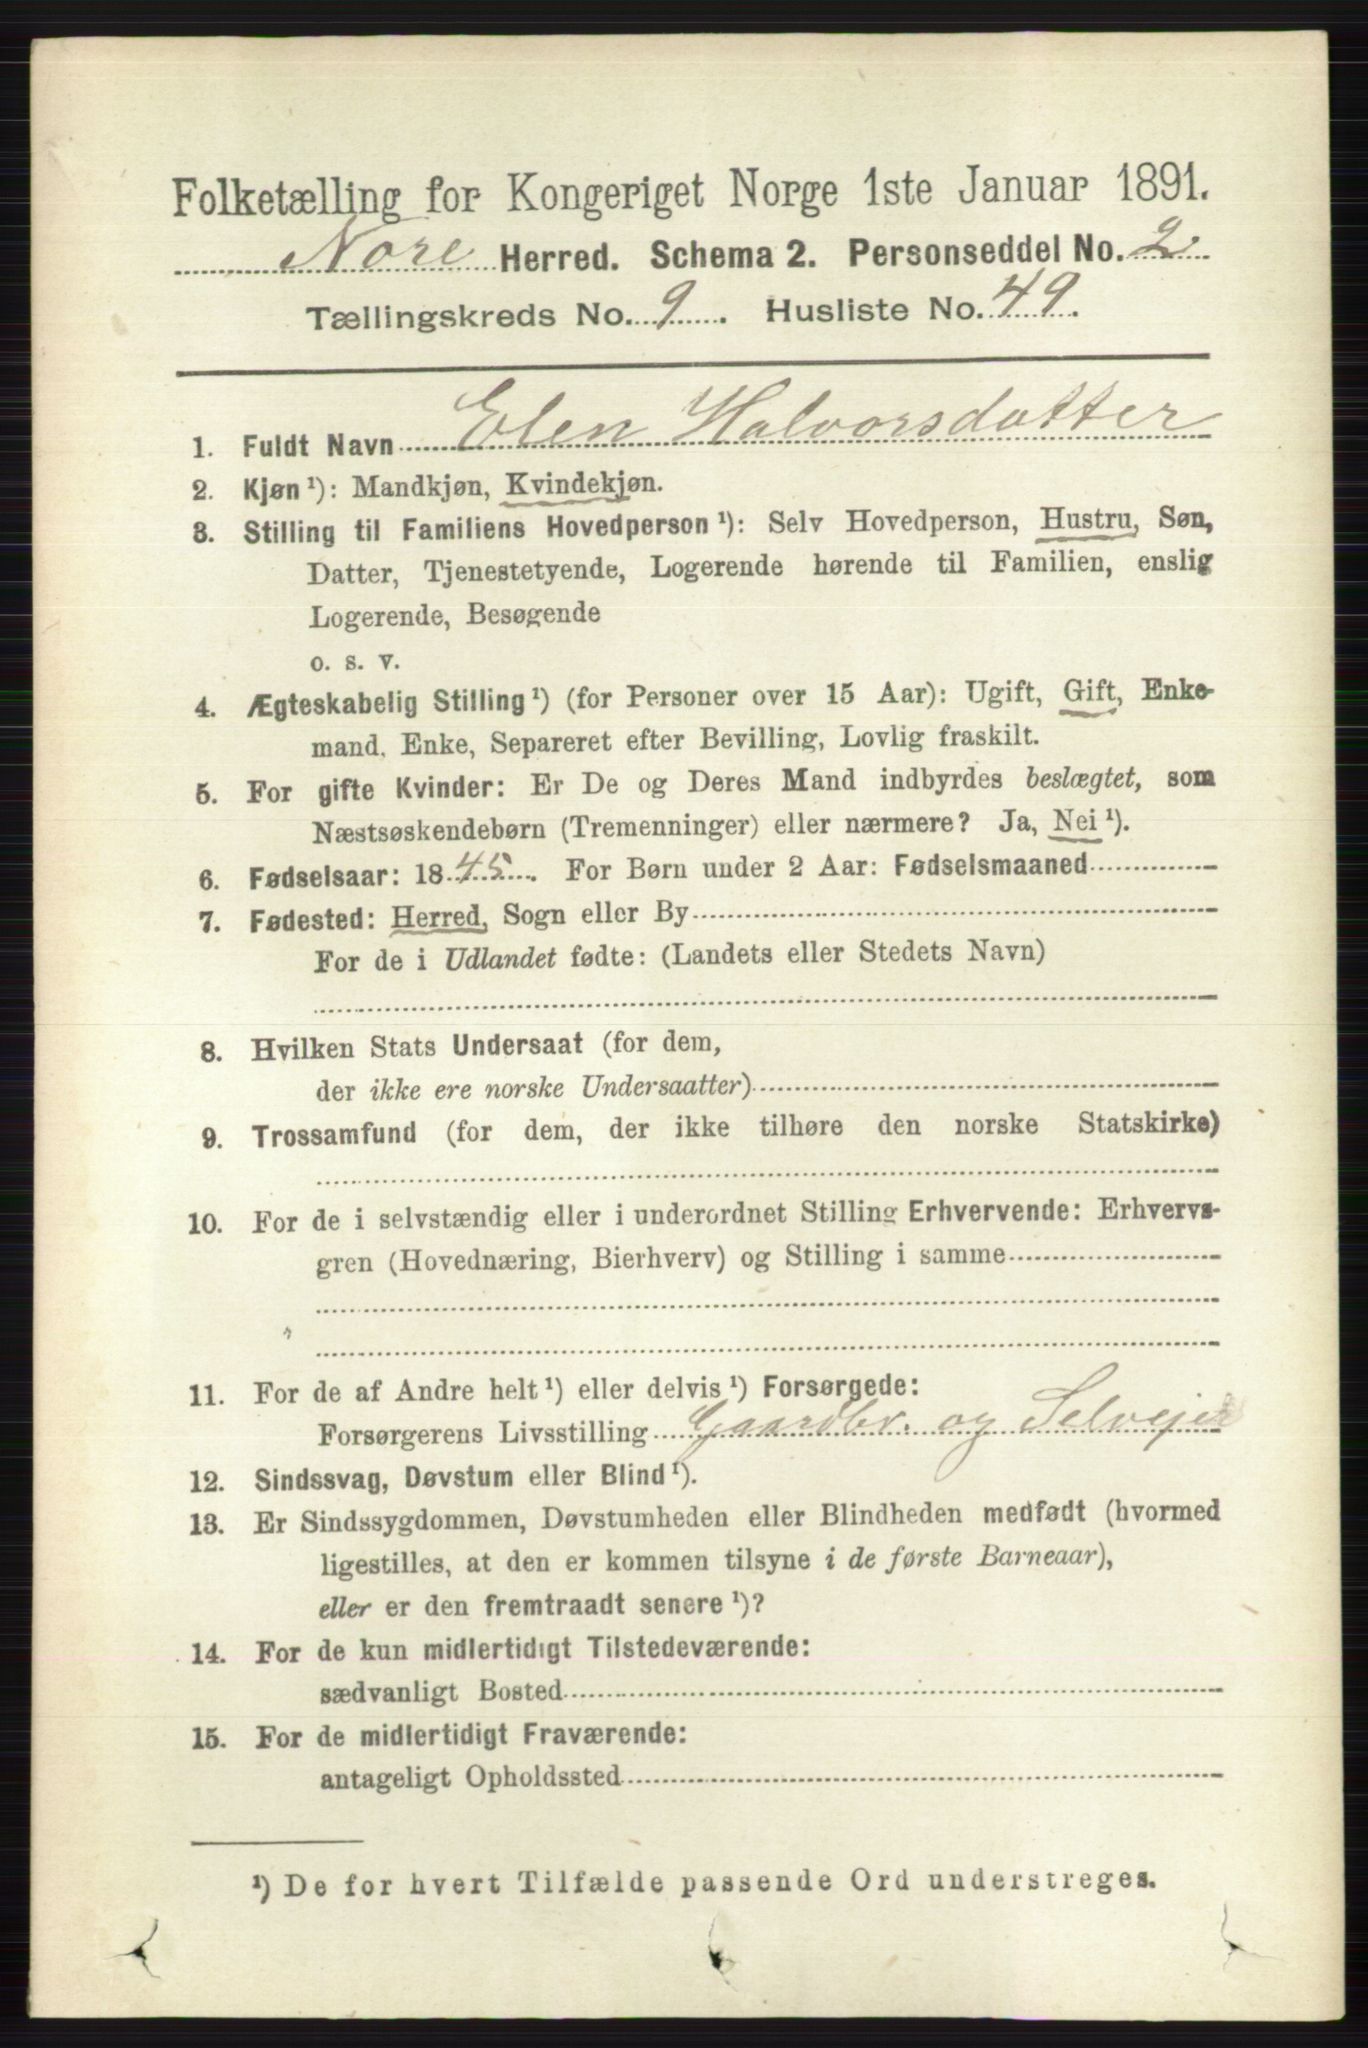 Folketælling for Kongeriget Norge 1ste Januar 1891.
Nore Herred. Schema 2. Personseddel No. 2.
Tællingskreds No. 9. Husliste No. 49.
1. Fuldt Navn Elen Halvorsdatter
2. Kjøn ¹): Mandkjøn, Kvindekjøn.
3. Stilling til Familiens Hovedperson ¹): Selv Hovedperson, Hustru, Søn,
Datter, Tjenestetyende, Logerende hørende til Familien, enslig
Logerende, Besøgende
o. s. v.
4. Ægteskabelig Stilling ¹) (for Personer over 15 Aar): Ugift, Gift, Enke-
mand, Enke, Separeret efter Bevilling, Lovlig fraskilt.
5. For gifte Kvinder: Er De og Deres Mand indbyrdes beslægtet, som
Næstsøskendebørn (Tremenninger) eller nærmere? Ja, Nei ¹).
6. Fødselsaar: 1845. For Børn under 2 Aar: Fødselsmaaned
7. Fødested: Herred, Sogn eller By
For de i Udlandet fødte: (Landets eller Stedets Navn)
8. Hvilken Stats Undersaat (for dem,
der ikke ere norske Undersaatter)
9. Trossamfund (for dem, der ikke tilhøre den norske Statskirke)
10. For de i selvstændig eller i underordnet Stilling Erhvervende: Erhvervs-
gren (Hovednæring, Bierhverv) og Stilling i samme
11. For de af Andre helt ¹) eller delvis ¹) Forsørgede:
Forsørgerens Livsstilling Gaardbr. og Selvejer
12. Sindssvag, Døvstum eller Blind ¹).
13. Er Sindssygdommen, Døvstumheden eller Blindheden medfødt (hvormed
ligestilles, at den er kommen tilsyne i de første Barneaar),
eller er den fremtraadt senere ¹)?
14. For de kun midlertidigt Tilstedeværende:
sædvanligt Bosted
15. For de midlertidigt Fraværende:
antageligt Opholdssted
¹) De for hvert Tilfælde passende Ord understreges.